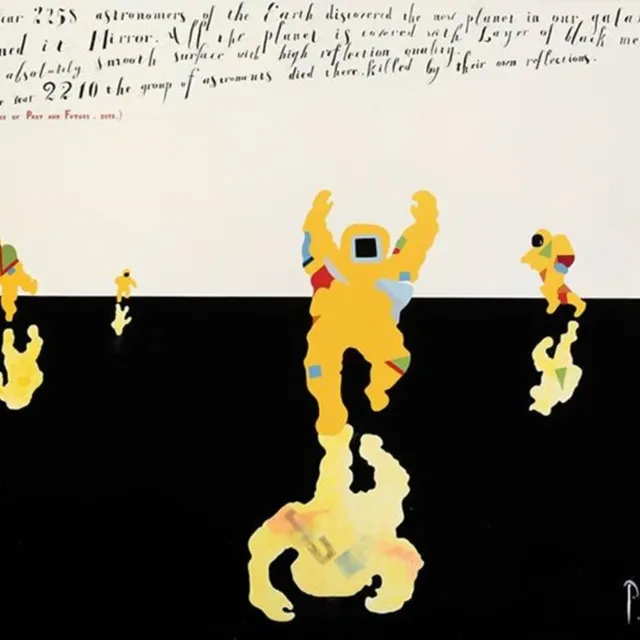 ear 2258 astronomers of the Earth discovered the new planet in our gala
ned it Mirror. All the planet is covered with Layer of black me
absolutely smooth surface with high reflection quality.
e year 2210 the group of astronauts died there. Killed by their own reflections.
of Past and Future
P